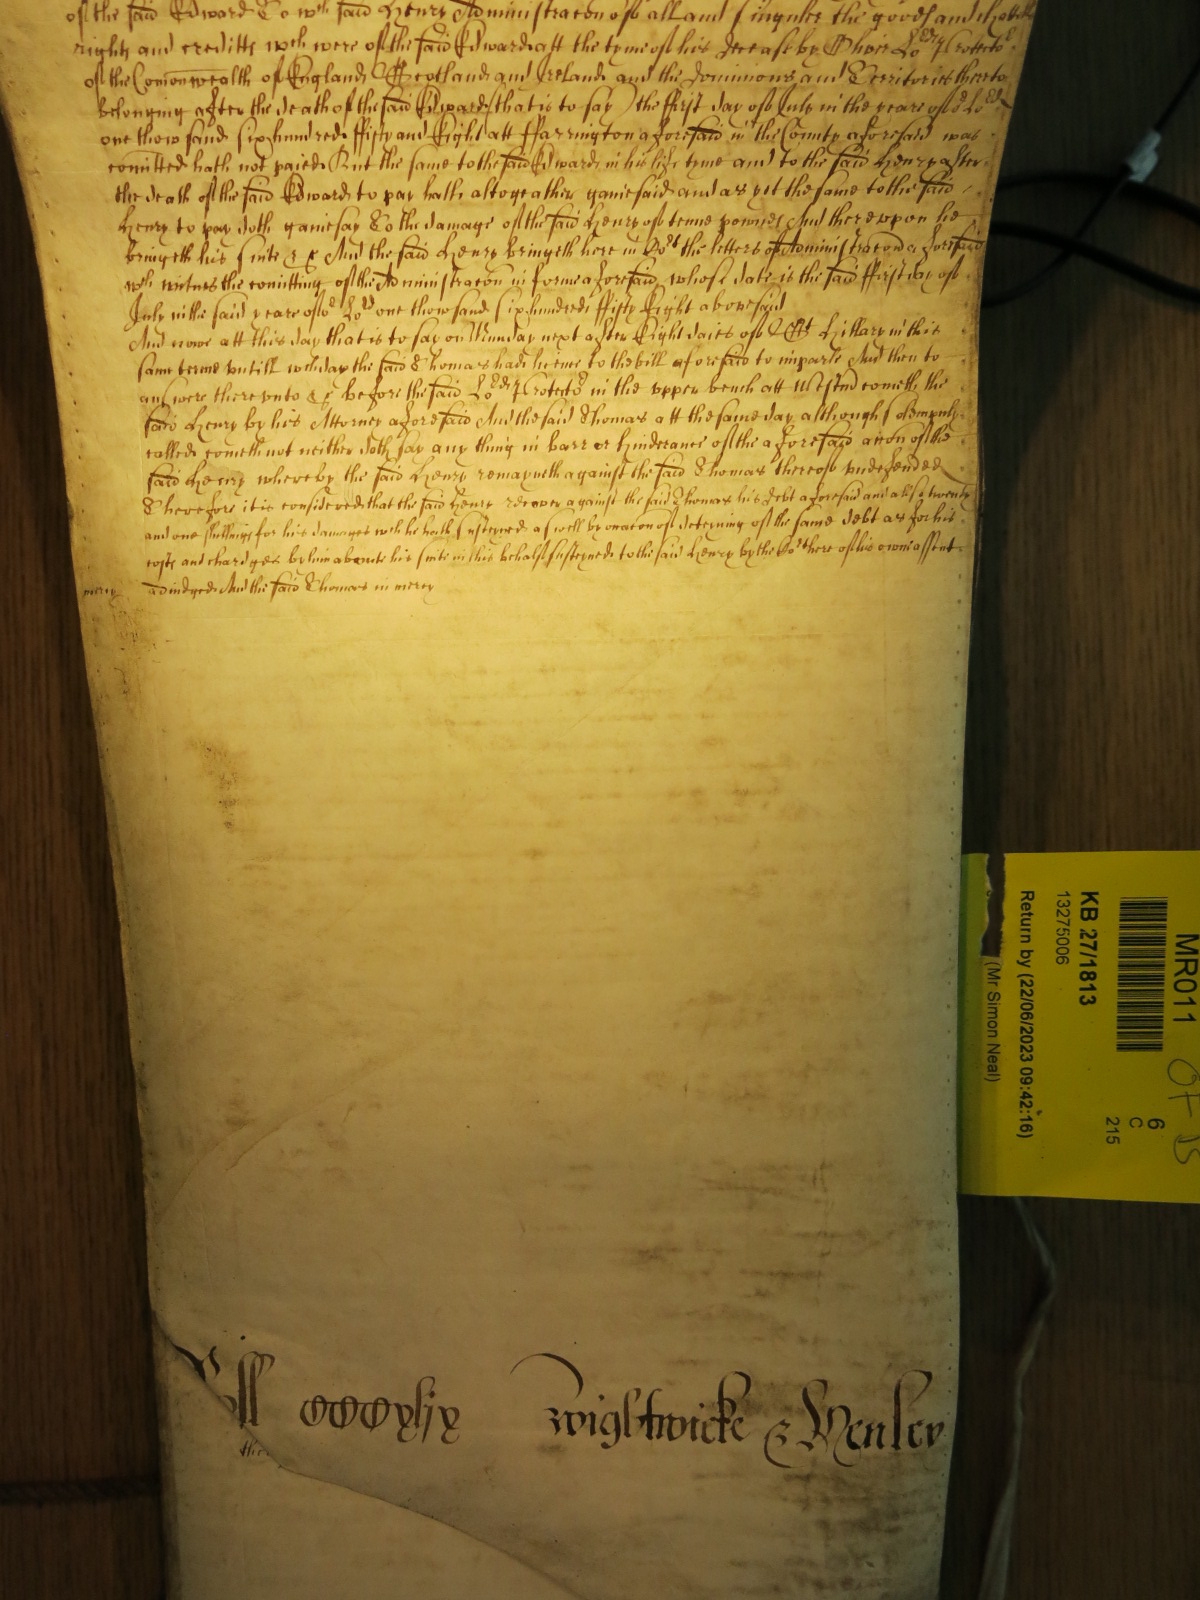 of the said Edward To wch said Henry Administracon of all and singuler the goods and chattells
rights and creditts wch were of the said Edward att the tyme of his decease by Oliver Lord Protector
of the Comonwealth of England Scotland and Ireland and the dominions and Territories thereto
belonging after the death of the said Edward (that is to say) the ffirst day of July in the yeare of or Lord
one thowsand six hundred ffifty and Eight att ffarrington aforesaid in the County aforesaid was
comitted hath not paied But the same to the said Edward in his life tyme and to the said Henry after
the death of the said Edward to pay hath altogeather gainesaid and as yet the same to the said
Henry to pay doth gainesay To the damage of the said Henry of tenne pownds And therevpon he
bringeth his suite &c And the said Henry bringeth here in Cort the letters of Administracon aforesaid
wch witnes the comitting of the Administracon in forme aforesaid whose date is the said ffirst day of
July in the said yeare of or Lord one thowsand six hundred ffifty Eight abovesaid
And nowe att this day that is to say on Munday next after Eight daies of St Hillary in this
same terme vntill wch day the said Thomas had licence to the bill aforesaid to imparle And then to
answere therevnto &c before the said Lord Protector in the vpper bench att Westmr cometh the
said Henry by his Attorney aforesaid And the said Thomas att the same day although solempnly
called cometh not neither doth say any thing in barr or hinderance of the aforesaid accon of the
said Henry whereby the said Henry remayneth against the said Thomas thereof vndefended
Therefore it is considered that the said Henry recover against the said Thomas his debt aforesaid and alsoe twenty
and one shillings for his damages wch he hath susteyned aswell by occacon of deteyning of the same debt as for his
costs and chardges by him aboute his suite in this behalf susteyned to the said Henry by the Cort here of his owne assent
adiudged And the said Thomas in mercy
mercy
Roll
Wightwicke & Henley
MR011
KB 27/1813
13275006
Return by (22/06/2023 09:42:16)
(Mr Simon Neal)
6
C
215